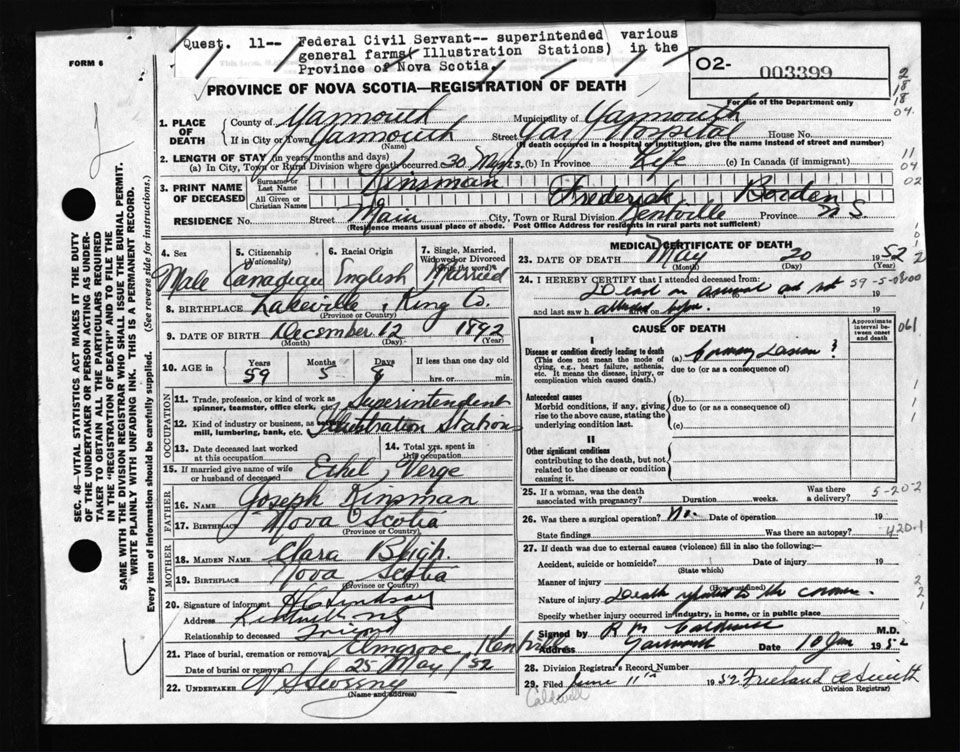 Quest. 11-- Federal Civil Servant-- superintended various
general farms( Illustration Stations) in the
Province of Nova Scotia.
FORM 6
02- 003399
For use of the Department only
PROVINCE OF NOVA SCOTIA—REGISTRATION OF DEATH
1. PLACE OF DEATH County of Yarmouth Municipality of Yarmouth
If in City or Town Yarmouth Street Yar Hospital House No.
(Name) (If death occurred in a hospital or institution, give the name instead of street and number)
2. LENGTH OF STAY (in years, months and days)
(a) In City, Town or Rural Division where death occurred 30 (b) In Province Life (c) In Canada (if immigrant)
3. PRINT NAME OF DECEASED Surname or Last Name Kinsman
All Given or Christian Names Frederick Borden
RESIDENCE No. Street Main City, Town or Rural Division Kentville Province N S
(Residence means usual place of abode. Post Office Address for residents in rural parts not sufficient)
4. Sex 5. Citizenship (Nationality) 6. Racial Origin 7. Single, Married, Widowed or Divorced (Write the word)
Male Canadian English Married
8. BIRTHPLACE Lakeville, King Co.
(Province or Country)
9. DATE OF BIRTH December 12 1892
(Month) (Day) (Year)
10. AGE in Years Months Days If less than one day old
59 5 8 hrs. or min.
OCCUPATION
11. Trade, profession, or kind of work as spinner, teamster, office clerk, etc. Superintendent
12. Kind of industry or business, as mill, lumbering, bank, etc. Illustration Stations
13. Date deceased last worked at this occupation 14. Total yrs. spent in this occupation
15. If married give name of wife or husband of deceased Ethel Verge
FATHER
16. NAME Joseph Kinsman
17. BIRTHPLACE Nova Scotia
(Province or Country)
MOTHER
18. MAIDEN NAME Clara Bligh.
19. BIRTHPLACE Nova Scotia
(Province or Country)
20. Signature of informant Lindsay
Address
Relationship to deceased Friend
21. Place of burial, cremation or removal Elmgrove, Kentville
Date of burial or removal 25 May /52
22. UNDERTAKER
(Name and address)
MEDICAL CERTIFICATE OF DEATH
23. DATE OF DEATH May 20 1952
(Month) (Day) (Year)
24. I HEREBY CERTIFY that I attended deceased from:
Dead on arrival and not 19
and last saw h alive on 19
attended by me.
CAUSE OF DEATH
Approximate interval between onset and death
I
Disease or condition directly leading to death (a) Coronary Lesion ?
(This does not mean the mode of dying, e.g., heart failure, asthenia, etc. It means the disease, injury, or complication which caused death.) due to (or as a consequence of)
Antecedent causes (b)
Morbid conditions, if any, giving rise to the above cause, stating the underlying condition last. due to (or as a consequence of)
(c)
II
Other significant conditions
contributing to the death, but not related to the disease or condition causing it.
25. If a woman, was the death associated with pregnancy? Duration weeks. Was there a delivery?
26. Was there a surgical operation? No. Date of operation 19
State findings Was there an autopsy?
27. If death was due to external causes (violence) fill in also the following:—
Accident, suicide or homicide? Date of injury 19
(State which)
Manner of injury
(How sustained)
Nature of injury Death reported to the coroner.
Specify whether injury occurred in industry, in home, or in public place
Signed by Caldwell M.D.
Address Yarmouth Date 10 Jun 1952
28. Division Registrar's Record Number
29. Filed June 11th 1952 Freeland A Smith
(Division Registrar)
Caldwell
2
18
18
04.
11
04
02
59-5-08-00
061
5-20-2
420.1
SEC. 46—VITAL STATISTICS ACT MAKES IT THE DUTY
OF THE UNDERTAKER OR PERSON ACTING AS UNDERTAKER
TO OBTAIN ALL THE PARTICULARS REQUIRED
IN THE "REGISTRATION OF DEATH" AND TO FILE THE
SAME WITH THE DIVISION REGISTRAR WHO SHALL ISSUE THE BURIAL PERMIT.
WRITE PLAINLY WITH UNFADING INK. THIS IS A PERMANENT RECORD.
Every item of information should be carefully supplied. (See reverse side for instructions.)